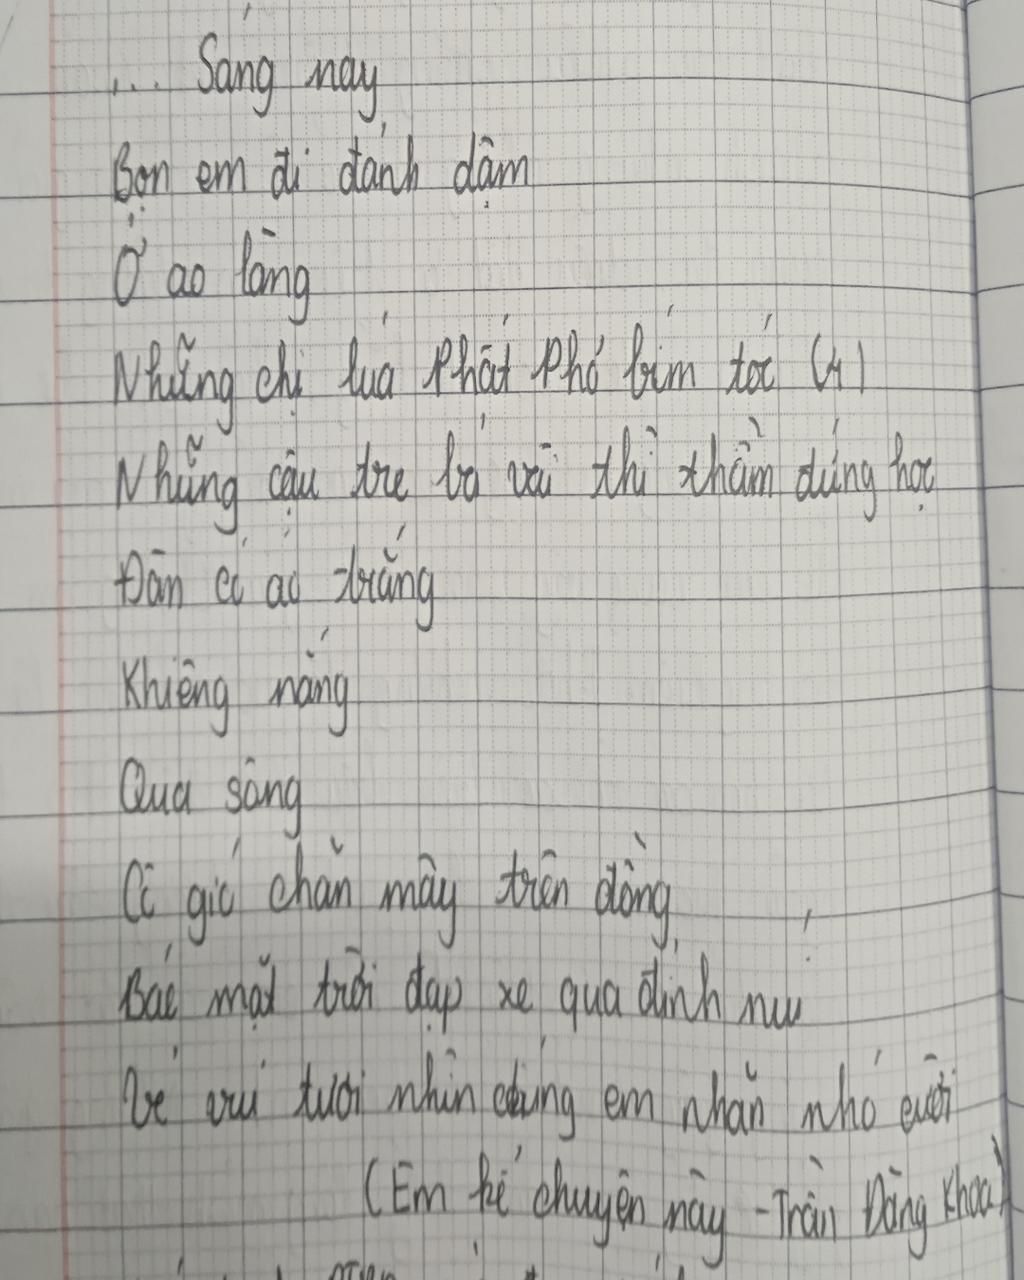 ... Sáng nay
Bọn em đi đánh dậm
Ở ao làng
Những chị lúa phất phơ bím tóc (1)
Những cậu tre bá vai thì thầm đứng học
Đàn cò áo trắng
Khiêng nắng
Qua sông
Cô gió chăn mây trên đồng
Bác mặt trời đạp xe qua đỉnh núi
Vẻ vui tươi nhìn chúng em nhăn nhó cười
(Em kể chuyện này - Trần Đăng Khoa)